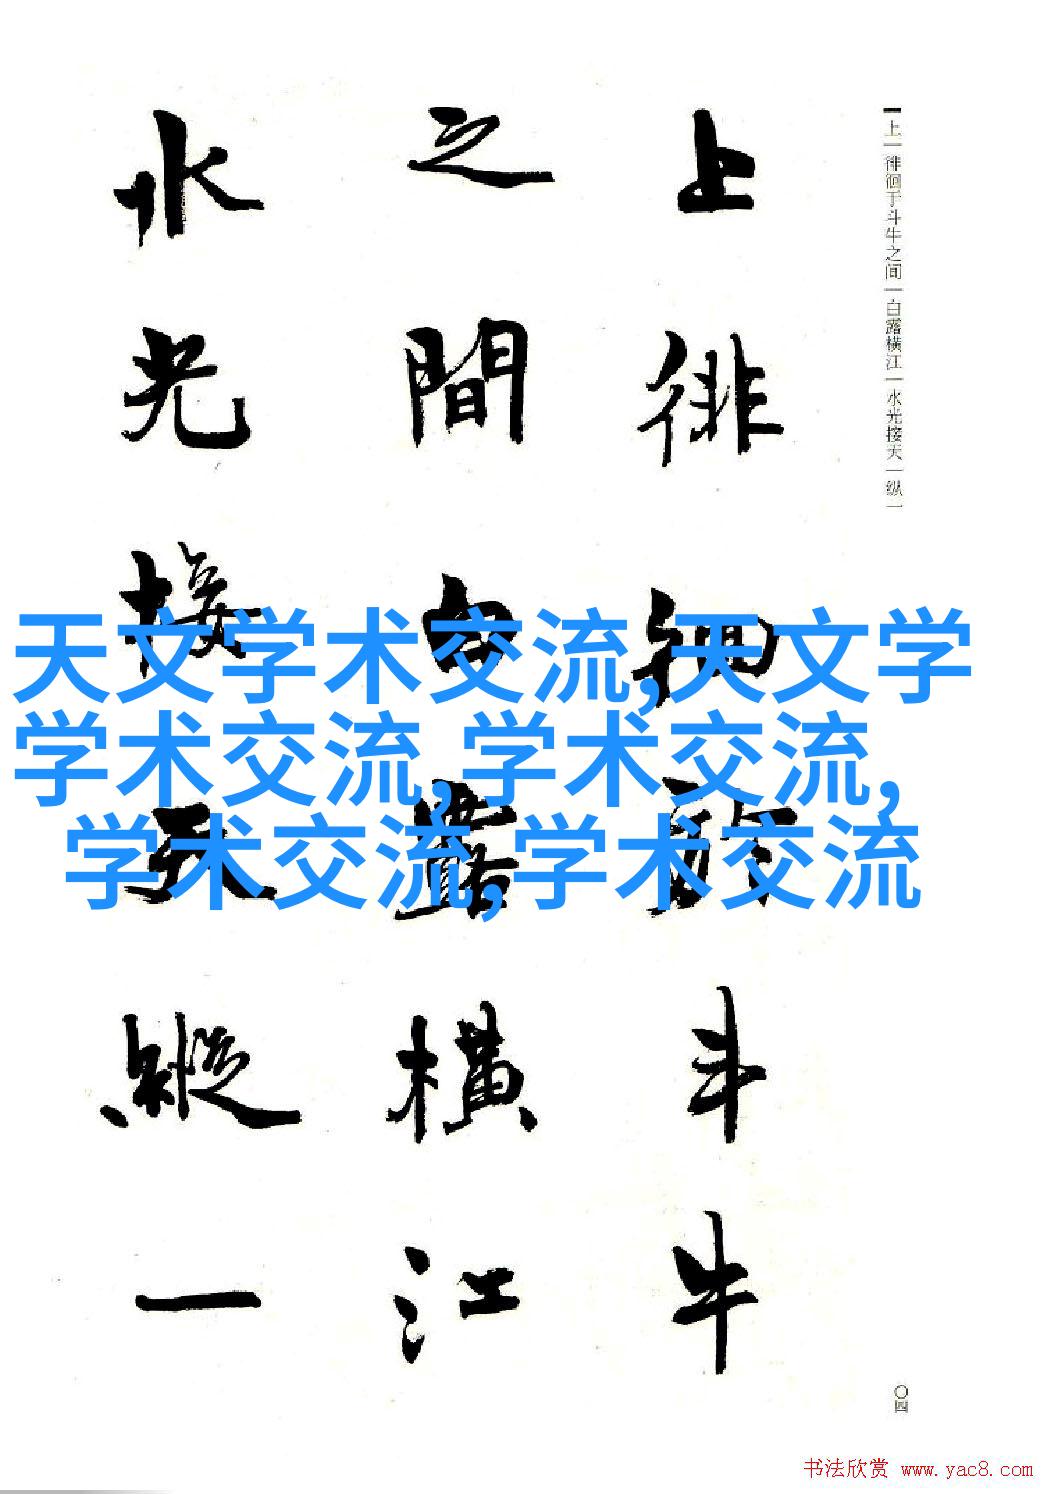 上徘徊於斗牛
之間白露橫江
水光接天縱一
上一徘徊于斗牛之间一白露横江一水光接天一纵一
天文学术交流,天文学
学术交流,学术交流,
学术交流,学术交流
〇四
书法欣赏 www.yac8.com